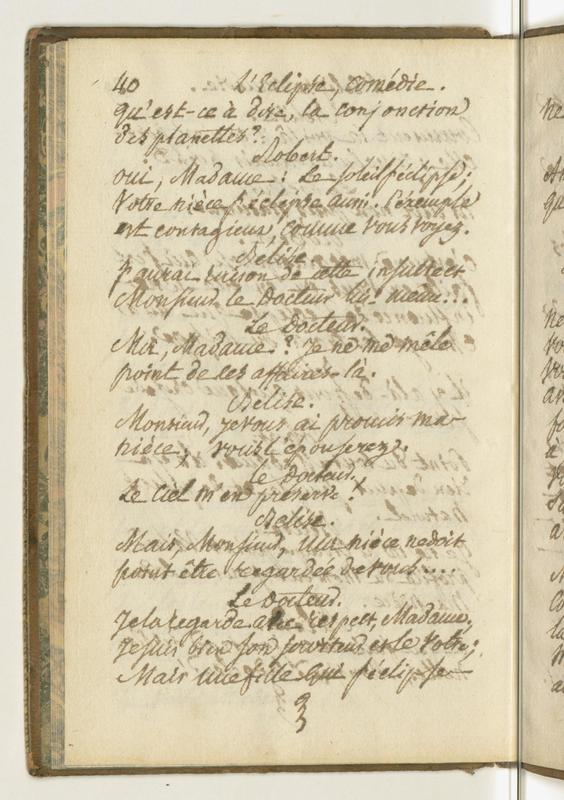 40 L'Eclipse, comédie.
qu'est-ce à dire, la conjonction
des planettes?
Robert.
oui, Madame: Le soleil s'éclipse;
Votre nièce s'éclipse aussi. l'exemple
est contagieux, comme vous voyez.
Belise.
J'aurai raison de cette insulte et
Monsieur le Docteur lui-même...
Le Docteur.
Moi, Madame? Je ne me mêle
point de ces affaires-là.
Belise.
Monsieur, je vous ai promis ma
nièce; vous l'épouserez.
Le Docteur.
Le Ciel m'en préserve!
Belise.
Mais, Monsieur, ma nièce ne doit
point être regardée de vous....
Le Docteur.
Je la regarde avec respect, Madame,
Je suis bien son serviteur et le votre;
Mais une fille qui s'éclipse